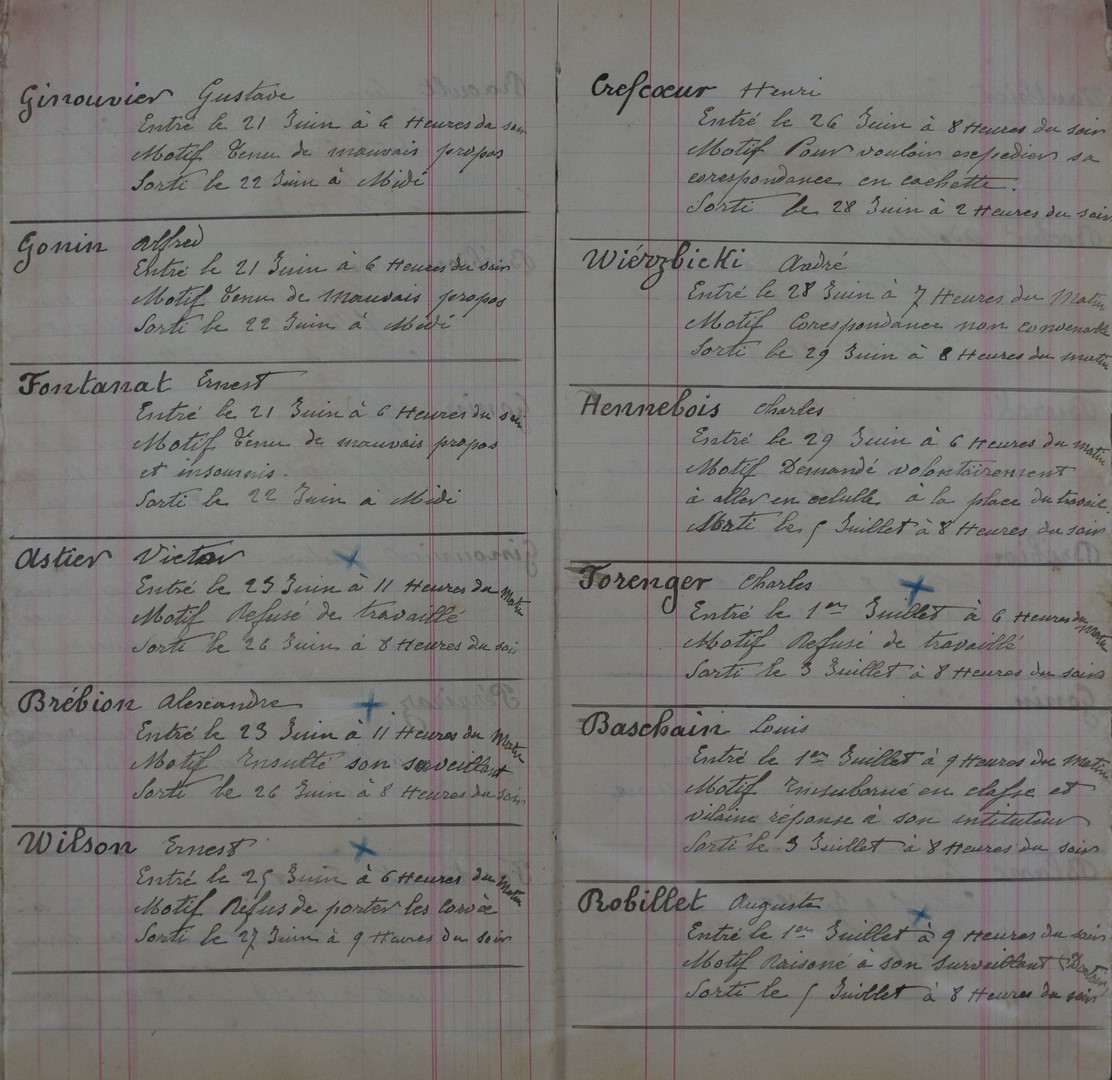 Ginouvier Gustave
Entré le 21 Juin à 6 Heures du soir
Motif Tenu de mauvais propos
Sorti le 22 Juin à Midi
Gonin Alfred
Entré le 21 Juin à 6 Heures du soir
Motif Tenu de mauvais propos
Sorti le 22 Juin à Midi
Fontanat Ernest
Entré le 21 Juin à 6 Heures du soir
Motif Tenu de mauvais propos
et insoumis.
Sorti le 22 Juin a Midi
Astier Victor
Entré le 23 Juin à 11 Heures du Matin
Motif Refusé de travaillé
Sorti le 26 Juin à 8 Heures du soi
Brébion Alexandre
Entré le 23 Juin à 11 Heures du Matin
Motif Insulté son surveillant
Sorti le 26 Juin à 8 Heures du soir
Wilson Ernest
Entré le 25 Juin à 6 Heures du Matin
Motif Refus de porter les corvée
Sorti le 27 Juin à 9 Heures du soir
Crescœur Henri
Entré le 26 Juin à 8 Heures du soir
Motif Pour vouloir expedier sa
corespondance en cachette.
Sorti le 28 Juin à 2 Heures du soir
Wiérzbicki André
Entré le 28 Juin à 7 Heures du Matin
Motif Corespondance non convenable
Sorti le 29 Juin à 8 Heures du matin
Hennebois Charles
Entré le 29 Juin à 6 Heures du matin
Motif Demandé volontairement
à aller en celulle à la place du travail.
Sorti le 5 Juillet à 8 Heures du soir
Forenger Charles
Entré le 1er Juillet à 6 Heures du Matin
Motif Refusé de travaillé
Sorti le 3 Juillet à 8 Heures du soir
Baschain Louis
Entré le 1er Juillet à 9 Heures du Matin
Motif Insuborné en classe et
vilaine réponse à son instituteur
Sorti le 3 Juillet à 8 Heures du soir
Robillet Auguste
Entré le 1er Juillet à 9 Heures du soir
Motif Raisoné à son surveillant
Sorti le 5 Juillet à 8 Heures du soir